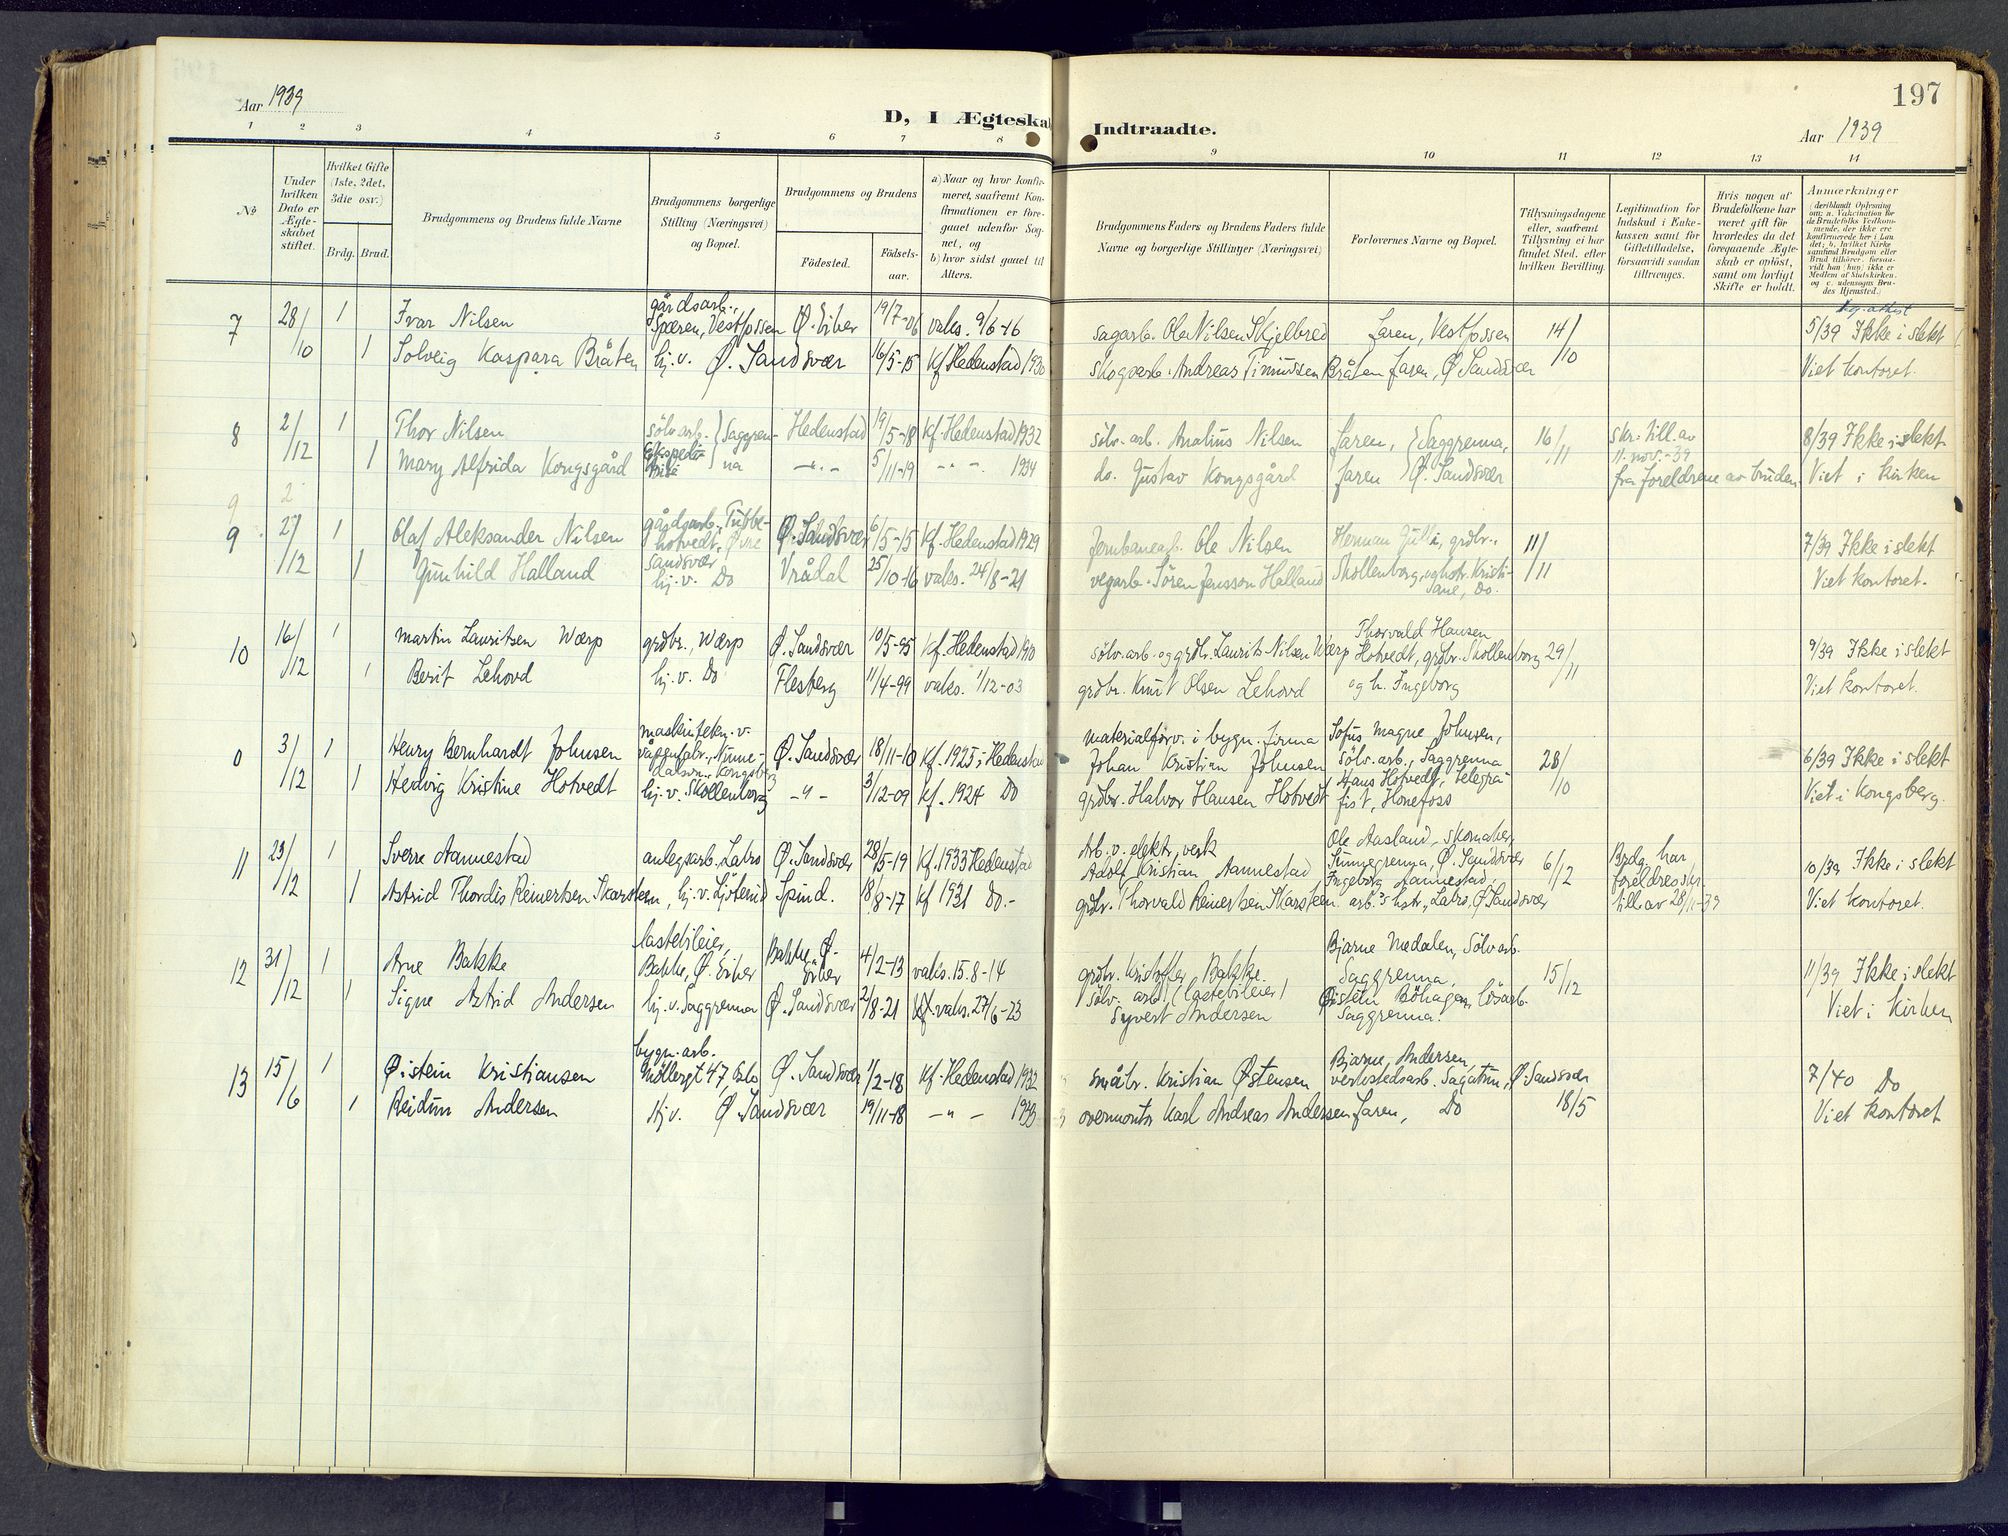 Aar 1939
D, I Ægteskab
Indtraadte.
197
Aar 1939
1 2 3 4 5 6 7 8
9 10 11 12 13 14
No
Under hvilken Dato er Ægteskabet stiftet.
Hvilket Gifte (1ste, 2det, 3die osv.)
Brdg. Brud.
Brudgommens og Brudens fulde Navne
Brudgommens borgerlige Stilling (Næringsvei) og Bopæl.
Brudgommens og Brudens
Fødested.
Fødselsaar.
a) Naar og hvor konfirmeret, saafremt Konfirmationen er foregaaet udenfor Sognet, og
b) hvor sidst gaaet til Alters.
Brudgommens Faders og Brudens Faders fulde Navne og borgerlige Stillinger (Næringsvei)
Forlovernes Navne og Bopæl.
Tillysningsdagene eller, saafremt Tillysning ei har fundet Sted, efter hvilken Bevilling.
Legitimation for Indskud i Enkekassen samt for Giftetilladelse, forsaavidt saadan tiltrænges.
Hvis nogen af Brudefolkene har været gift før hvorledes da det foregaaende Ægteskab er opløst, samt om lovligt Skifte er holdt.
Anmærkninger
7 28/10 1 Ivar Nilsen gårdsarb., Spæren, Vestfossen Ø. Eiker 19/7-06 vaks. 9/6-16 sagarb. Ola Nilsen Skjelbred Faren, Vestfossen 14/10 5/39 Ikke i slekt
1 Solveig Kaspara Bråten hj.v. Ø. Sandsvær 16/5-15 Kf Hedenstad 1930 skogsarb. Andreas Timussen Bråten Faren, Ø Sandsvær Viet kontoret.
8 2/12 1 Thor Nilsen sølv.arb. Saggrenna Hedenstad 19/5-18 Kf. Hedenstad 1932 sølv. arb. Anatius Nilsen Faren, Saggrenna, 16/11 skr. till. av 11. nov.-39 8/39 Ikke i slekt
1 Mary Alfrida Kongsgård -"- 5/11-19 -"- 1934 do. Gustav Kongsgård Faren Ø. Sandsvær fra foreldrene av bruden Viet i kirken
9 2
9 2/12 1 Olaf Aleksander Nilsen gårdsarb., Tubbehotvedt, Øvre Sandsvær Ø. Sandsvær 6/5-15 Kf. Hedenstad 1929 Jernbanearb. Ole Nilsen Herman grdbr. 11/11 7/39 Ikke i slekt
1 Gunhild Halland hj.v. Do Vrådal 25/10-16 vaks. 24/8-21 vegarb. Sören Jensson Halland Skollenborg, og hstr. Kristiane, Do. Viet kontoret.
10 16/12 1 Martin Lauritsen Wærp grdbr., Wærp Ø. Sandsvær 10/5-95 Kf. Hedenstad 1910 sølv.arb. og grdbr. Laurits Nilsen Wærp Thorvald Hansen Hotvedt, grdbr. Skollenborg 29/11 9/39 Ikke i slekt
1 Berit Lehovd hj.v. Do Flesberg 11/4-99 vaks. 1/12-03 grdbr. Knut Olsen Lehovd og h. Ingeborg Viet kontoret.
0 3/12 1 Henry Bernhardt Johnsen maskintekn. v. våpenfabr., Kongsberg Ø. Sandsvær 18/11-10 Kf. 1925 i Hedenstad materialforv. i bygn. firma Johan Kristian Johnsen Sofus Magne Johnsen, sølv. arb., Saggrenna 28/10 6/39 Ikke i slekt
1 Hedvig Kristine Hotvedt hj.v. Skollenborg -"- 3/12-09 Kf. 1924 Do grdbr. Halvor Hansen Hotvedt Hans Hotvedt, telegrafist, Hønefoss Viet i Kongsberg.
11 23/12 1 Sverre Aannestad anlegsarb. Labro Ø. Sandsvær 28/5-19 Kf. 1933 Hedenstad Arb. v. elektr. verk Adolf Kristian Aannestad Ole Aasland, skomaker, Ø. Sandsvær 6/12 Brdg. har foreldres skr. till av 28/11-39 10/39 Ikke i slekt
1 Astrid Thordis Reinertsen Skarsteen, hj.v. Spind. 18/8-17 Kf 1931 Do.- grdbr. Thorvald Reinertsen Skarsteen. Ingeborg Aannestad, arb.s hstr, Labro, Ø Sandsvær Viet kontoret.
12 31/12 1 Arne Bakke lastebileier, Bakke, Ø. Eiker Bakke, Ø. Eiker 4/2-13 vaks. 15.8-14 grdbr. Kristoffer Bakke Bjarne Medalen, Sølvarb. Saggrenna, 15/12 11/39 Ikke i slekt
1 Signe Astrid Andersen hj. v. Saggrenna Ø. Sandsvær 2/8-21 vaks. 27/6-23 sølv. arb. (lastebileier) Syvert Andersen Øistein Böhagen, Saggrenna. Viet i Kirken
13 15/6 1 Øistein Kristiansen bygn. arb. Möllergt 47, Oslo Ø. Sandsvær 1/2-18 Kf. Hedenstad 1932 småbr. Kristian Østensen Bjarne Andersen, verkstedsarb. Sagatun, Ø. Sandsvær 7/40 Do
1 Reidun Andersen Hj v. Ø. Sandsvær 19/11-18 -"- 1933 overmontør Karl Andreas Andersen Faren, Do 18/5 Viet kontoret